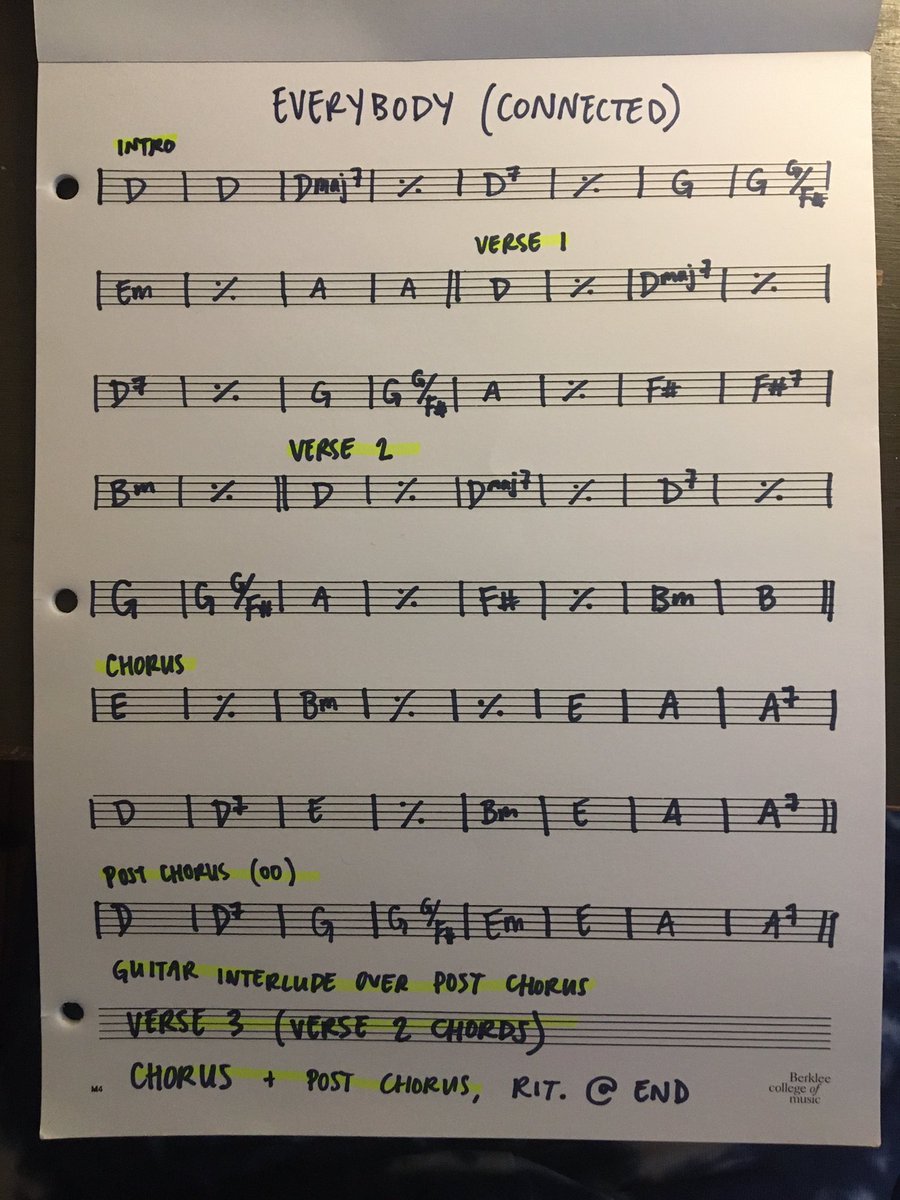 EVERYBODY (CONNECTED)
INTRO
| D | D | Dmaj7 | ٪ | D7 | ٪ | G | G G/F# |
VERSE 1
| Em | ٪ | A | A || D | ٪ | Dmaj7 | ٪ |
| D7 | ٪ | G | G G/F# | A | ٪ | F# | F#7 |
VERSE 2
| Bm | ٪ || D | ٪ | Dmaj7 | ٪ | D7 | ٪ |
| G | G G/F# | A | ٪ | F# | ٪ | Bm | B ||
CHORUS
| E | ٪ | Bm | ٪ | ٪ | E | A | A7 |
| D | D7 | E | ٪ | Bm | E | A | A7 ||
POST CHORUS (OO)
| D | D7 | G | G G/F# | Em | E | A | A7 ||
GUITAR INTERLUDE OVER POST CHORUS
VERSE 3 (VERSE 2 CHORDS)
CHORUS + POST CHORUS, RIT. @ END
M6
Berklee
college of
music